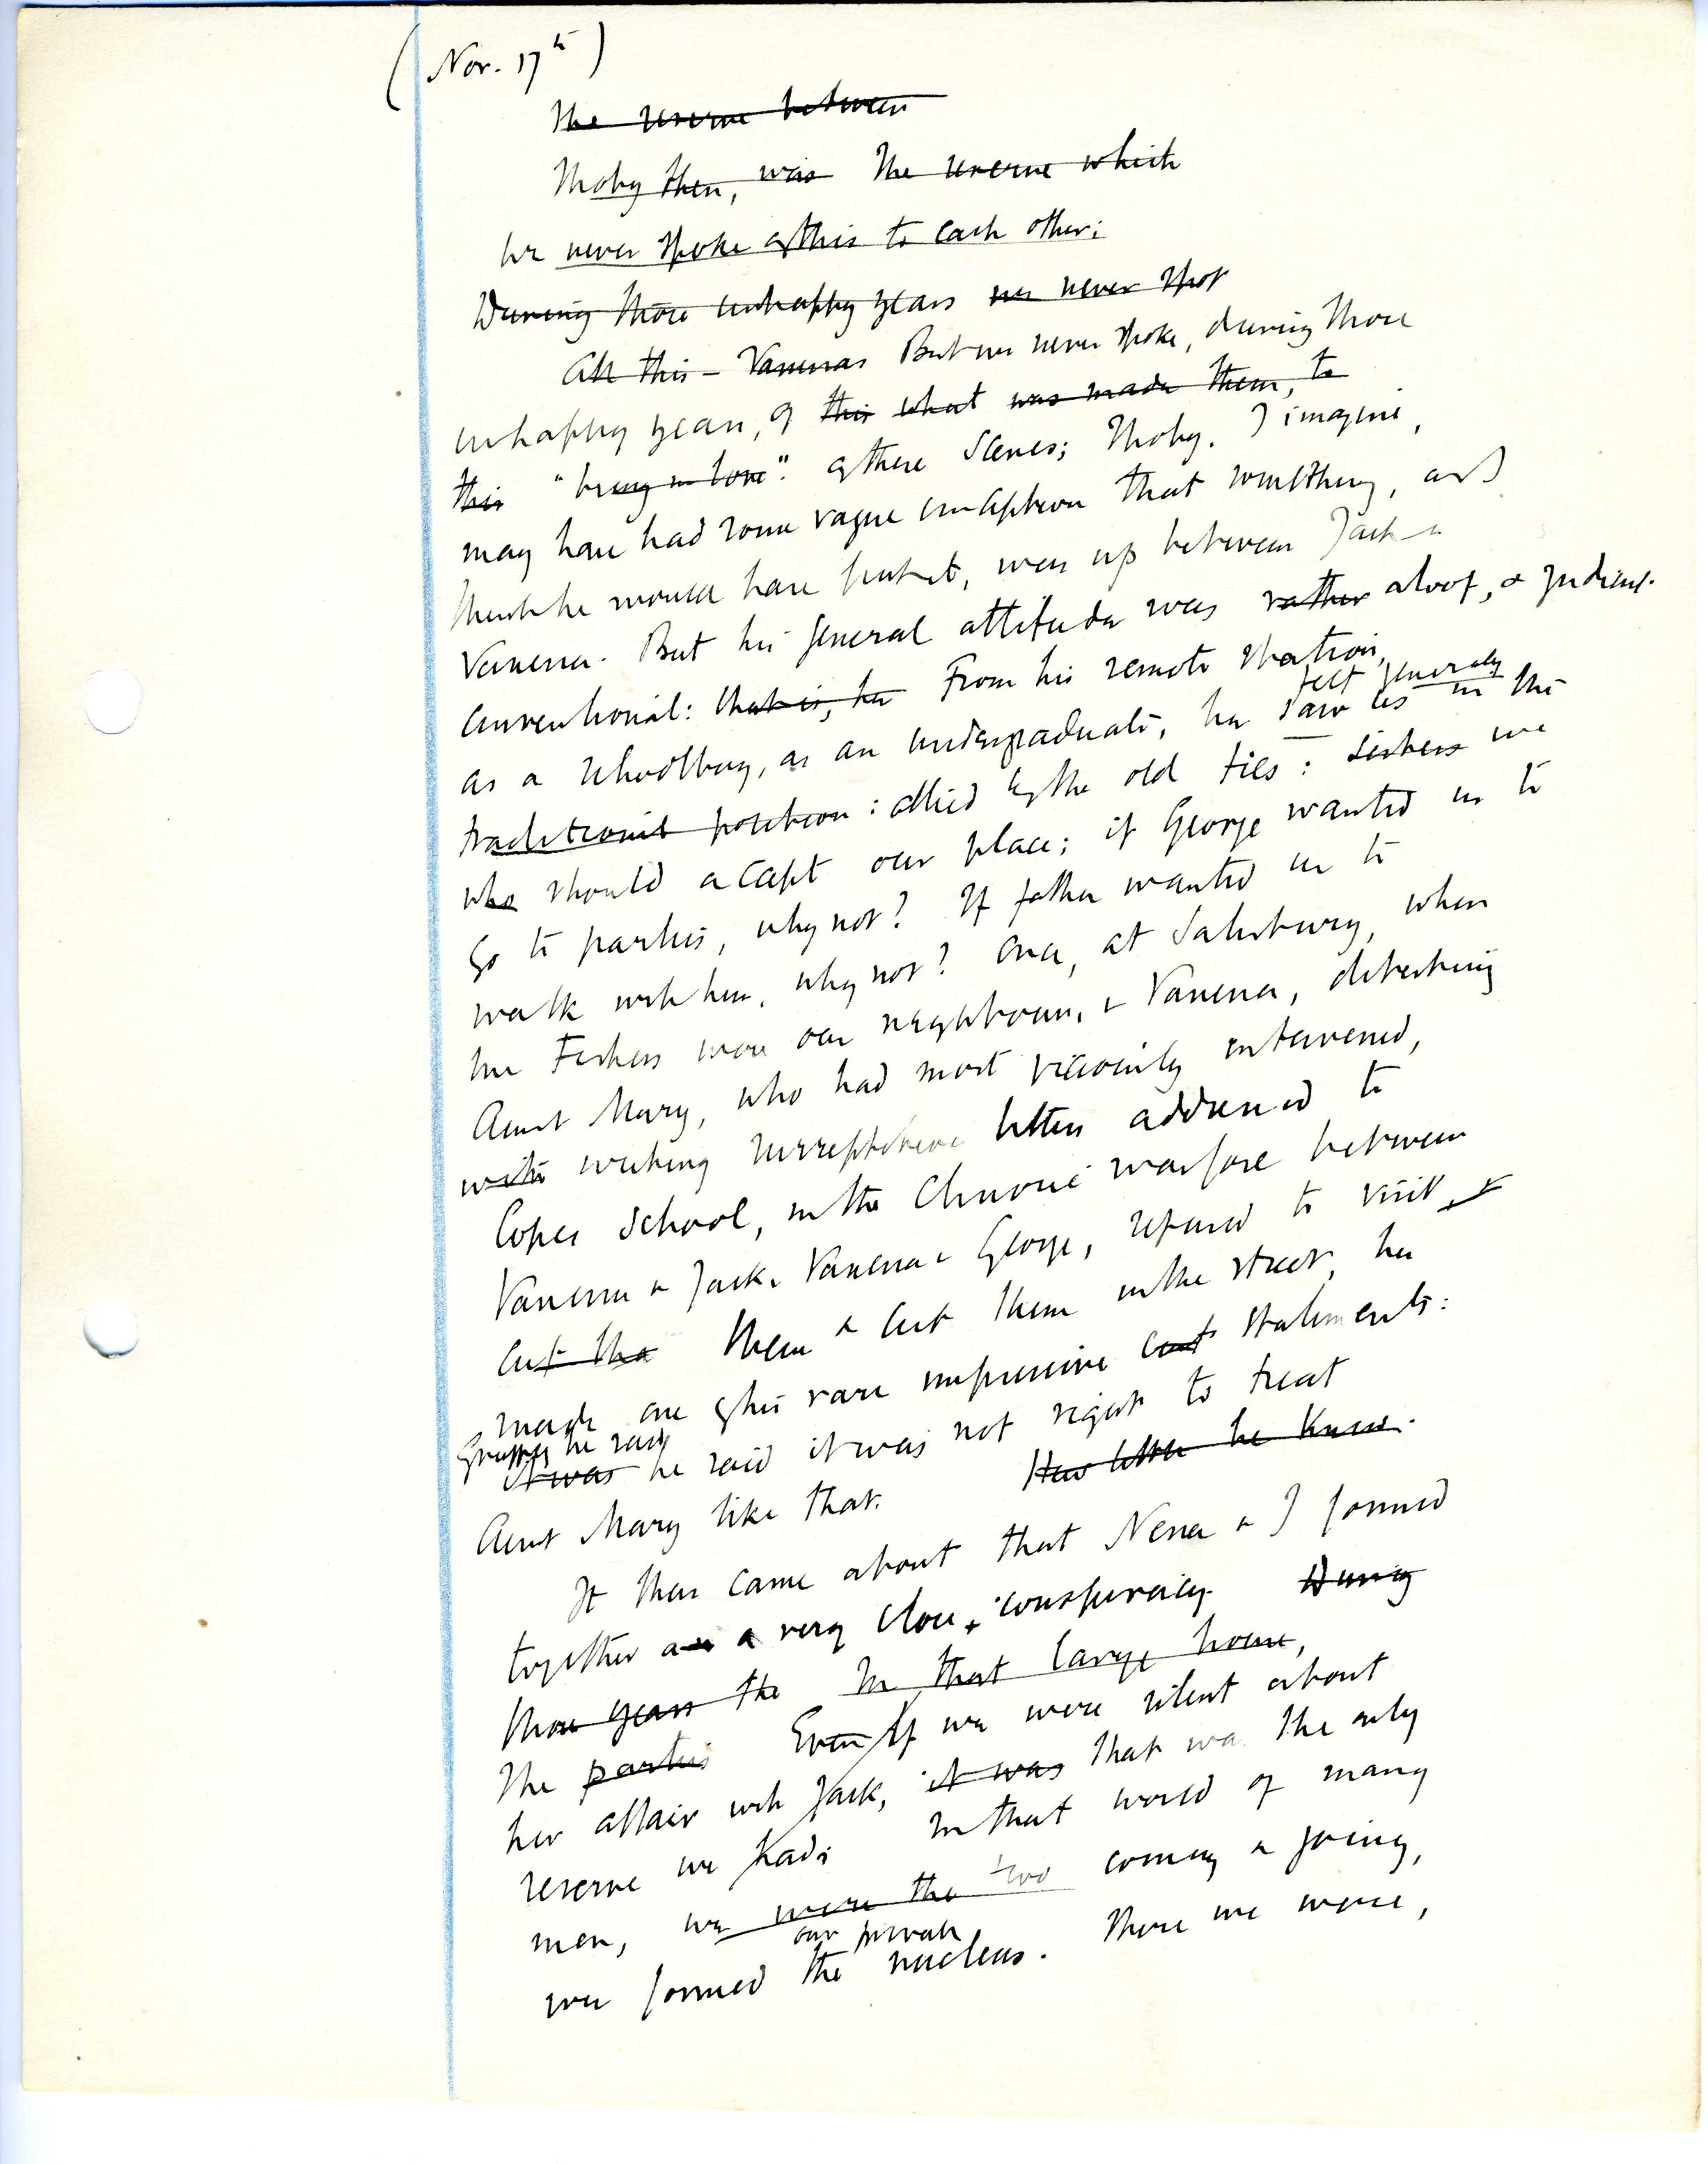 (Nov. 17th)
The reserve between
Thoby then, was The reserve which
we never spoke of this to each other;
During those unhappy years we never spok
All this — Vanessas But we never spoke, during those
unhappy years, of this what was made them, to
this "being in love". of these scenes; Thoby, I imagine,
may have had some vague conception that something, as
he would have put it, was up between Jack &
Vanessa. But his general attitude was rather aloof, &
conventional: that is, he From his remote station,
felt generally
as a schoolboy, as an undergraduate, he saw us in the
traditional position: allied by the old ties: sisters we
who should accept our place; if George wanted us to
go to parties, why not? If father wanted us to
walk with him, why not? Once, at Salisbury, when
the Fishers were our neighbours, & Vanessa, detecting
Aunt Mary, who had most viciously intervened,
with writing surreptitious letters addressed to
Copes School, in the chronic warfare between
Vanessa & Jack, Vanessa & George, refused to visit &
cut the them & cut them in the street, he
made one of his rare impressive statements:
he said
it was he said it was not right to treat
Aunt Mary like that. How little he knew.
It thus came about that Nessa & I formed
together an a very close conspiracy. During
those years the In that large house,
The parties Even If we were silent about
her affair with Jack, it was that was the only
reserve we had; In that world of many
men, we were the two coming & going,
our private
we formed the nucleus. There we were,